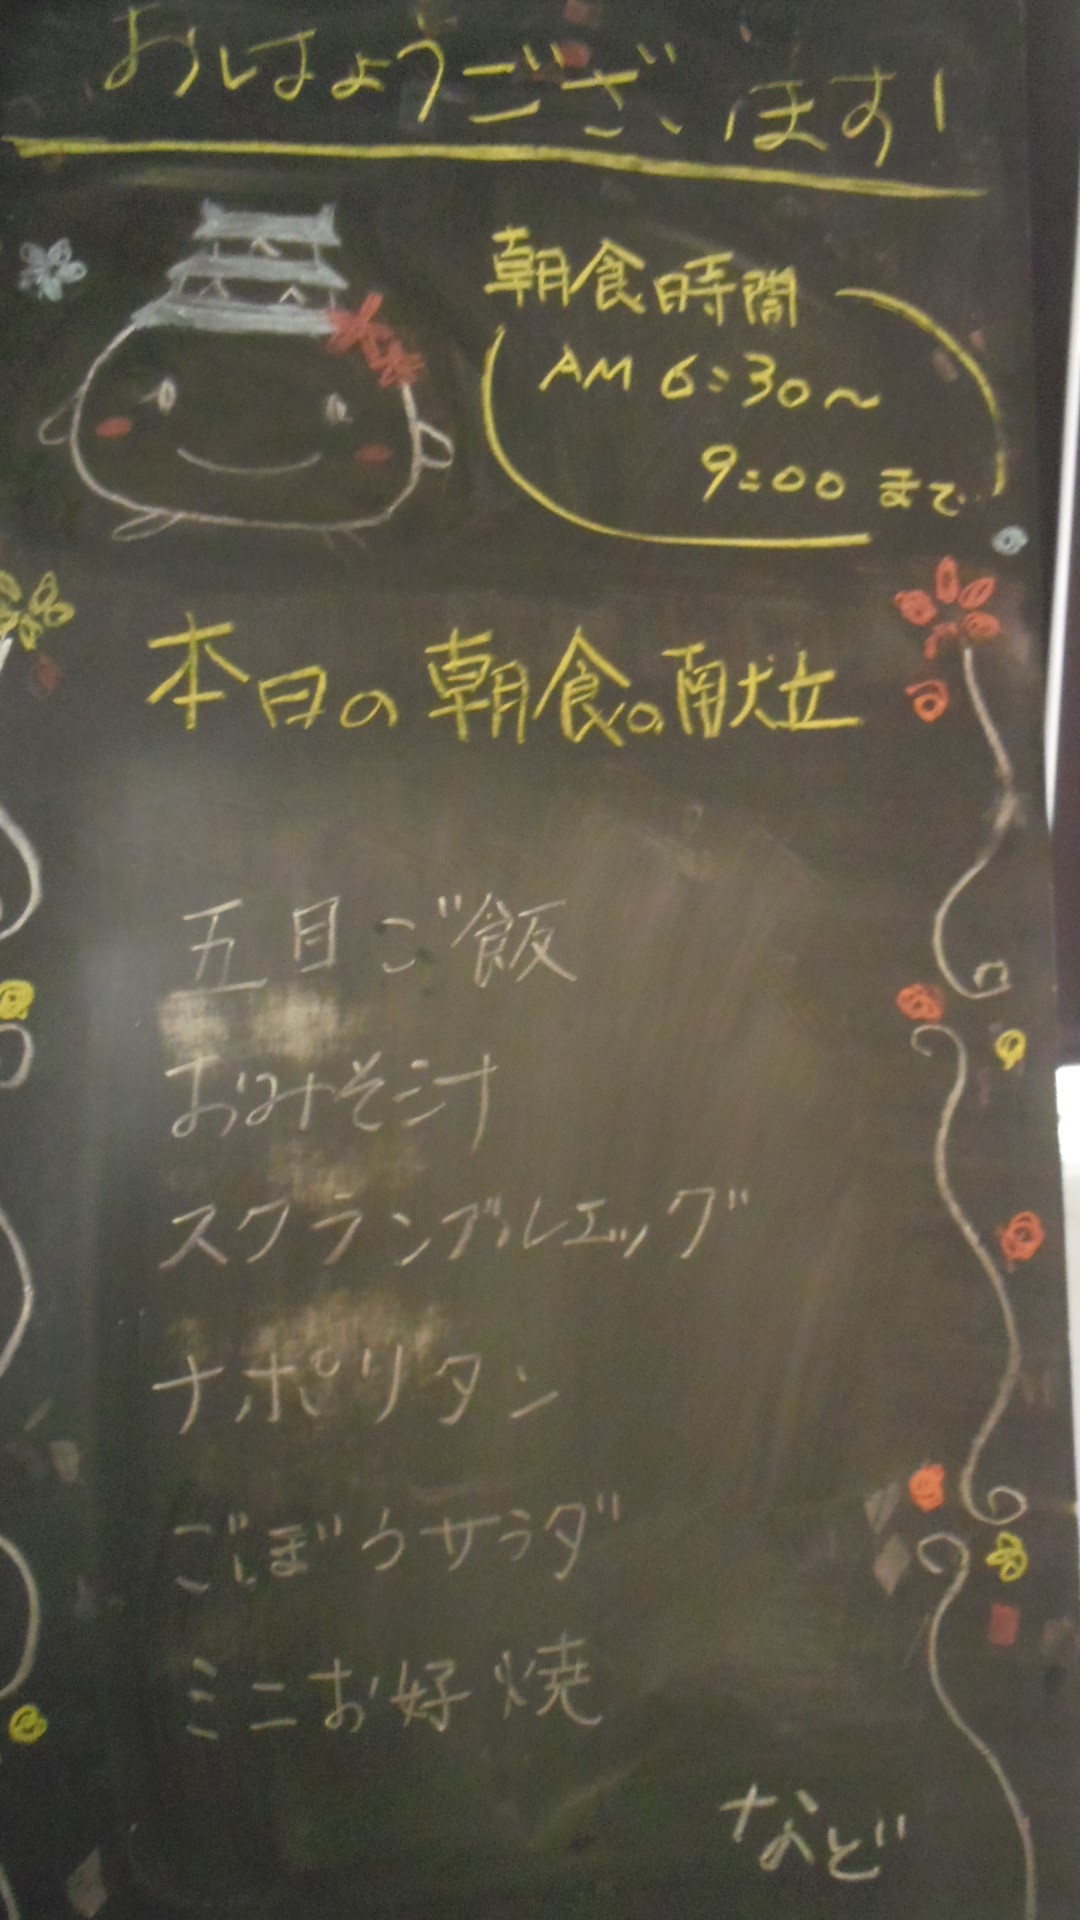 おはようございます!
朝食時間
AM 6:30~
9:00 まで
本日の朝食の献立
五目ご飯
おみそ汁
スクランブルエッグ
ナポリタン
ごぼうサラダ
ミニお好焼
など